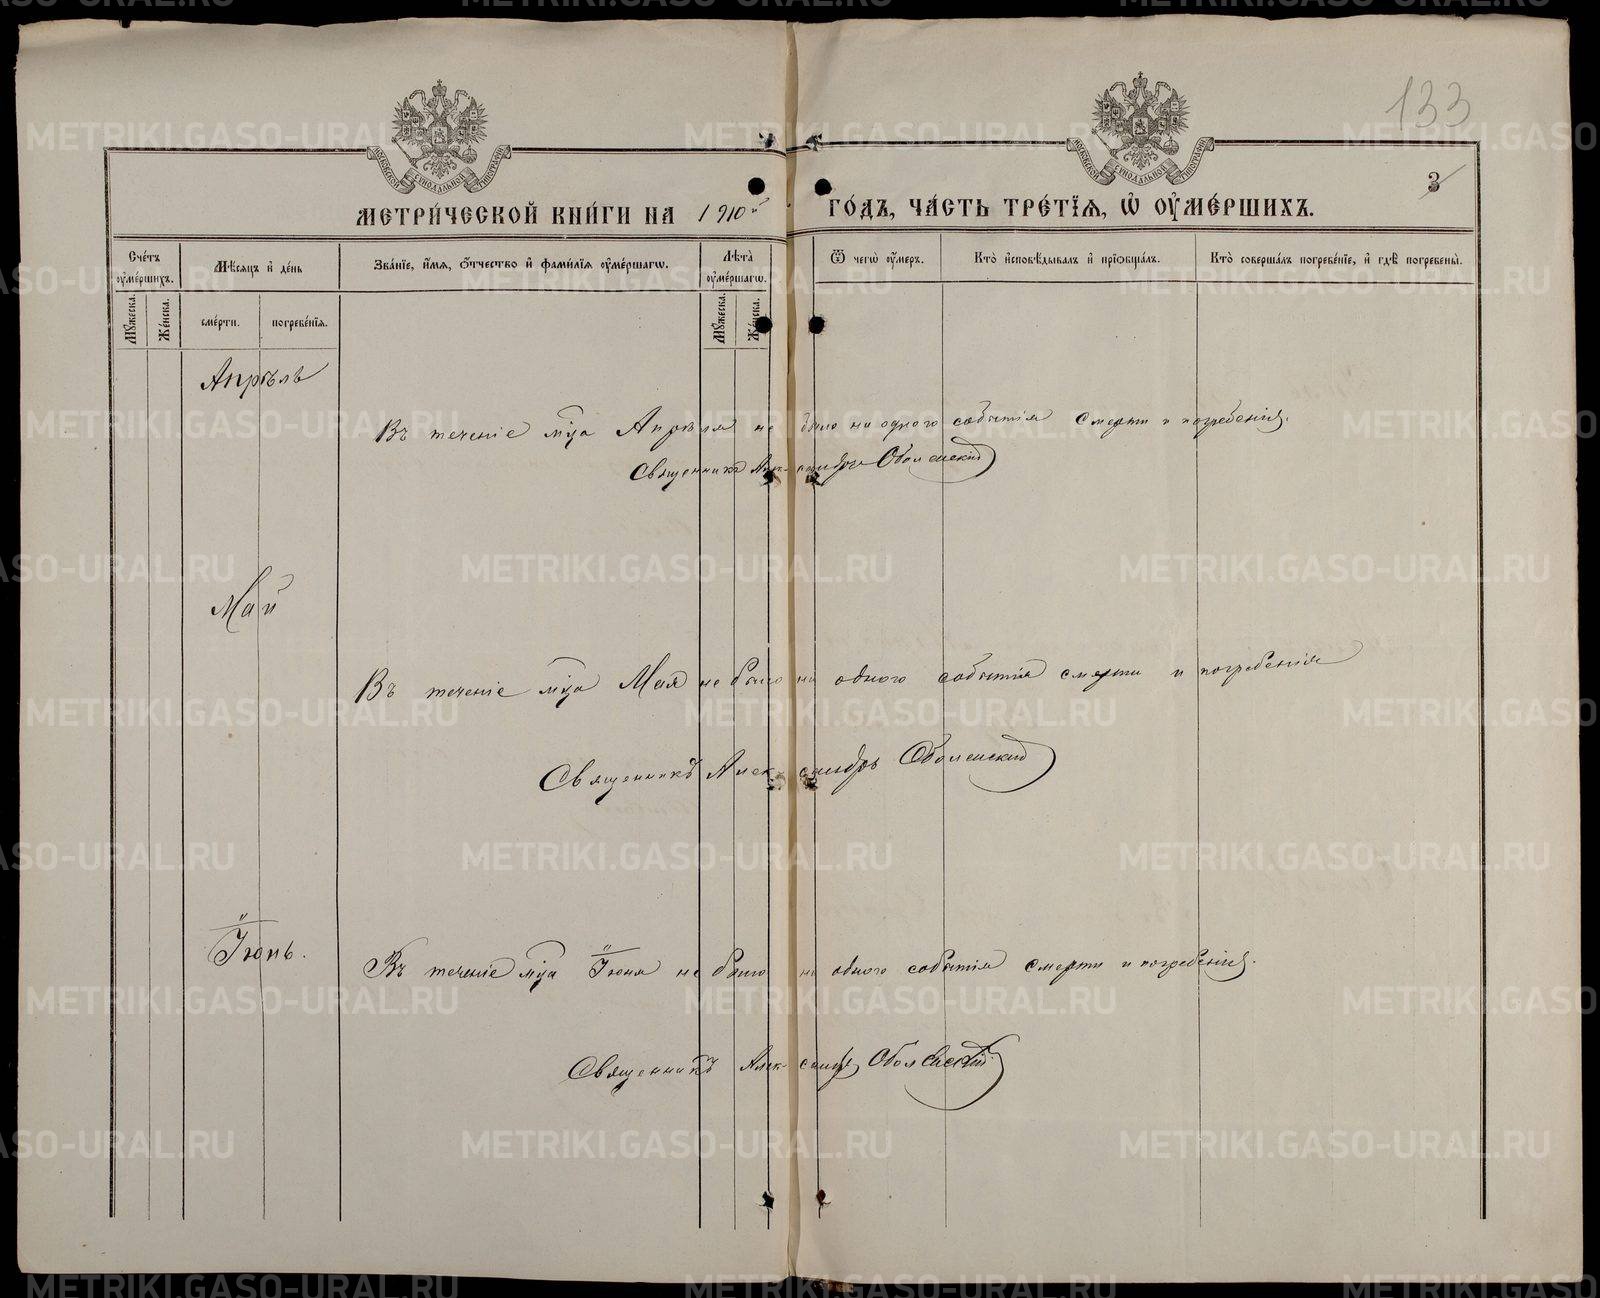 133
3
МОСКОВСКОЙ СѴНОДАЛЬНОЙ ТИПОГРАФІИ
МОСКОВСКОЙ СѴНОДАЛЬНОЙ ТИПОГРАФІИ
МЕТРИ́ЧЕСКОЙ КНИ́ГИ НА 1910й ГО́ДЪ, ЧА́СТЬ ТРЕ́ТЇѦ, Ѡ҆ ОУ҆МЕ́РШИХЪ.
Сче́тъ оу҆ме́ршихъ.
Мѣ́сяцъ и҆ де́нь
Зва́нїе, и҆́мя, ѻ҆́тчество и҆ фами́лїя оу҆ме́ршагѡ.
Лѣ́та оу҆ме́ршагѡ.
Ѿ чегѡ̀ оу҆́меръ.
Кто̀ и҆сповѣ́дывалъ и҆ прїѡбща́лъ.
Кто̀ соверша́лъ погребе́нїе, и҆ гдѣ̀ погребены̀.
Мꙋ́жеска.
Же́нска.
сме́рти.
погребе́нїя.
Мꙋ́жеска.
Же́нска.
Апрѣль
Въ теченіе м҃ца Апрѣля не было ни одного событія смерти и погребенія.
Священникъ Александръ Оболенскій
Май
Въ теченіе м҃ца Мая не было ни одного событія смерти и погребенія
Священникъ Александръ Оболенскій
Іюнь.
Въ теченіе м҃ца Іюня не было ни одного событія смерти и погребенія.
Священникъ Александръ Оболенскій
METRIKI.GASO-URAL.RU